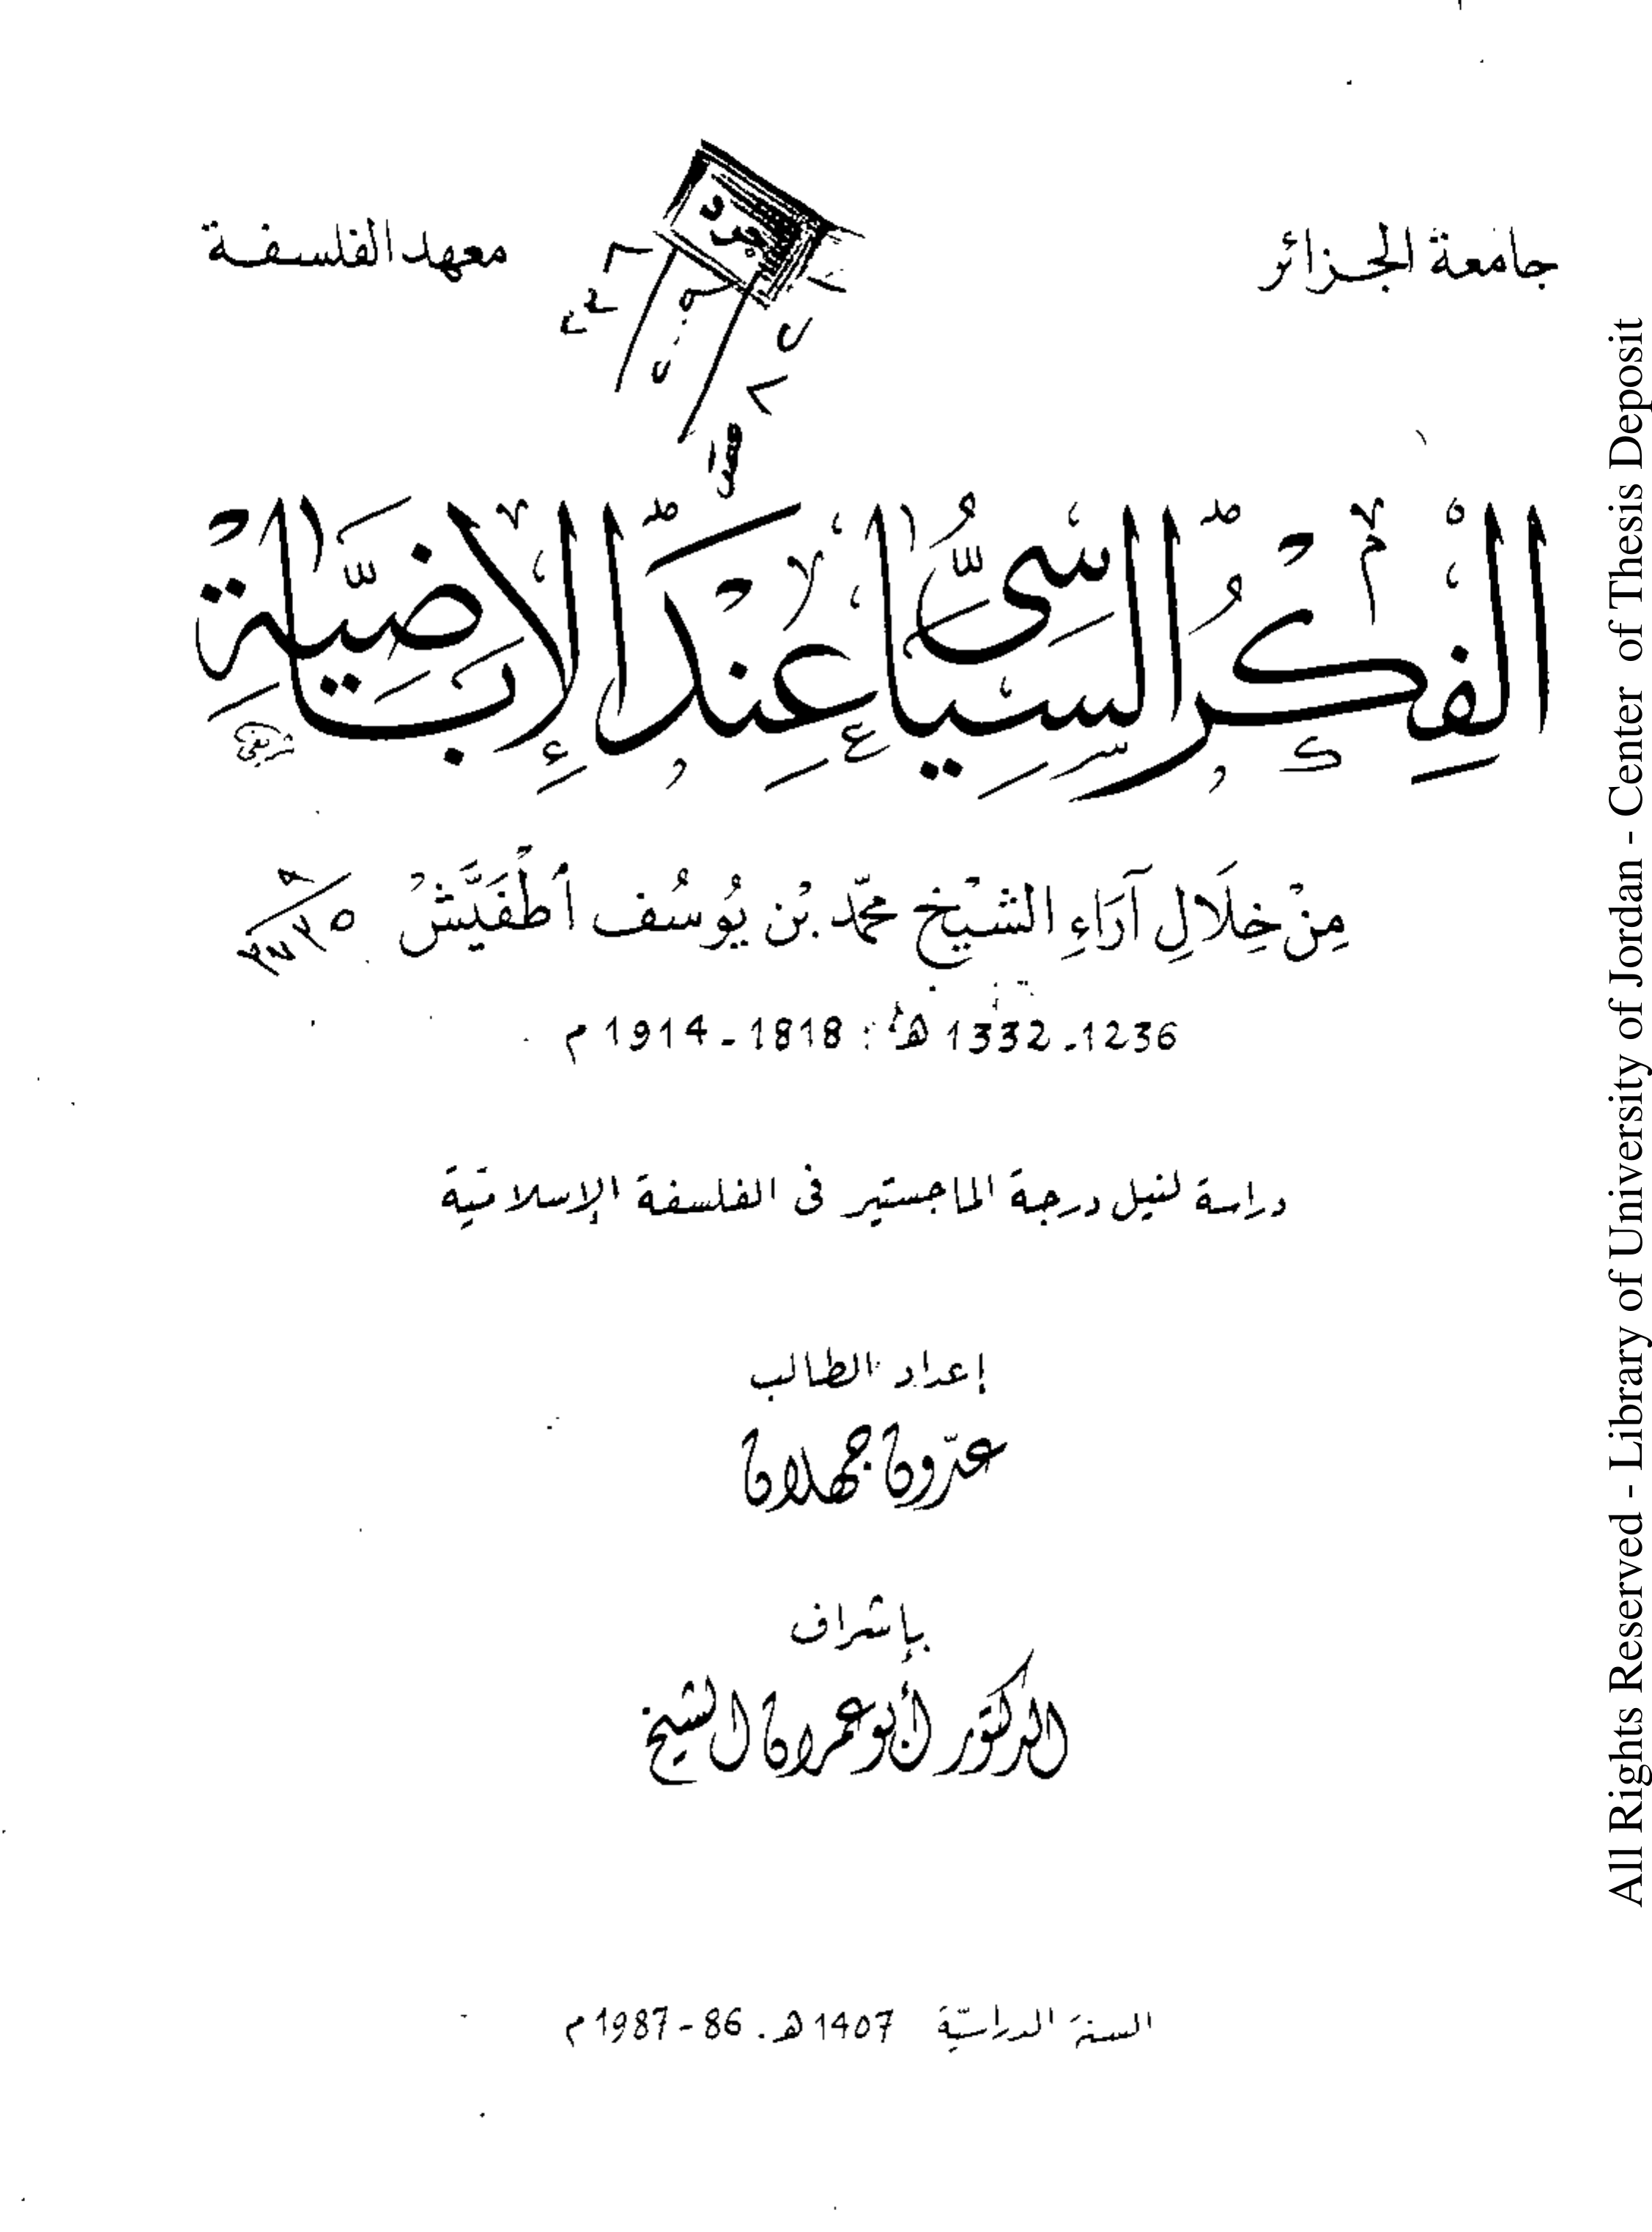 جامعة الجزائر
معهد الفلسفة
الفِكْرُ السِّيَاسِيُّ عِنْدَ الإِبَاضِيَّةِ
شريفي
مِنْ خِلَالِ آرَاءِ الشَّيْخ محمّد بْن يُوسُف أطْفَيَّشْ
1236-1332 هـ : 1818-1914 م
دراسة لنيل درجة الماجستير في الفلسفة الإسلاميّة
إعداد الطالب
عدّون جهلان
بإشراف
الدكتور أبو عمران الشيخ
السنة الدراسيّة 1407 هـ . 86-1987 م
All Rights Reserved - Library of University of Jordan - Center of Thesis Deposit